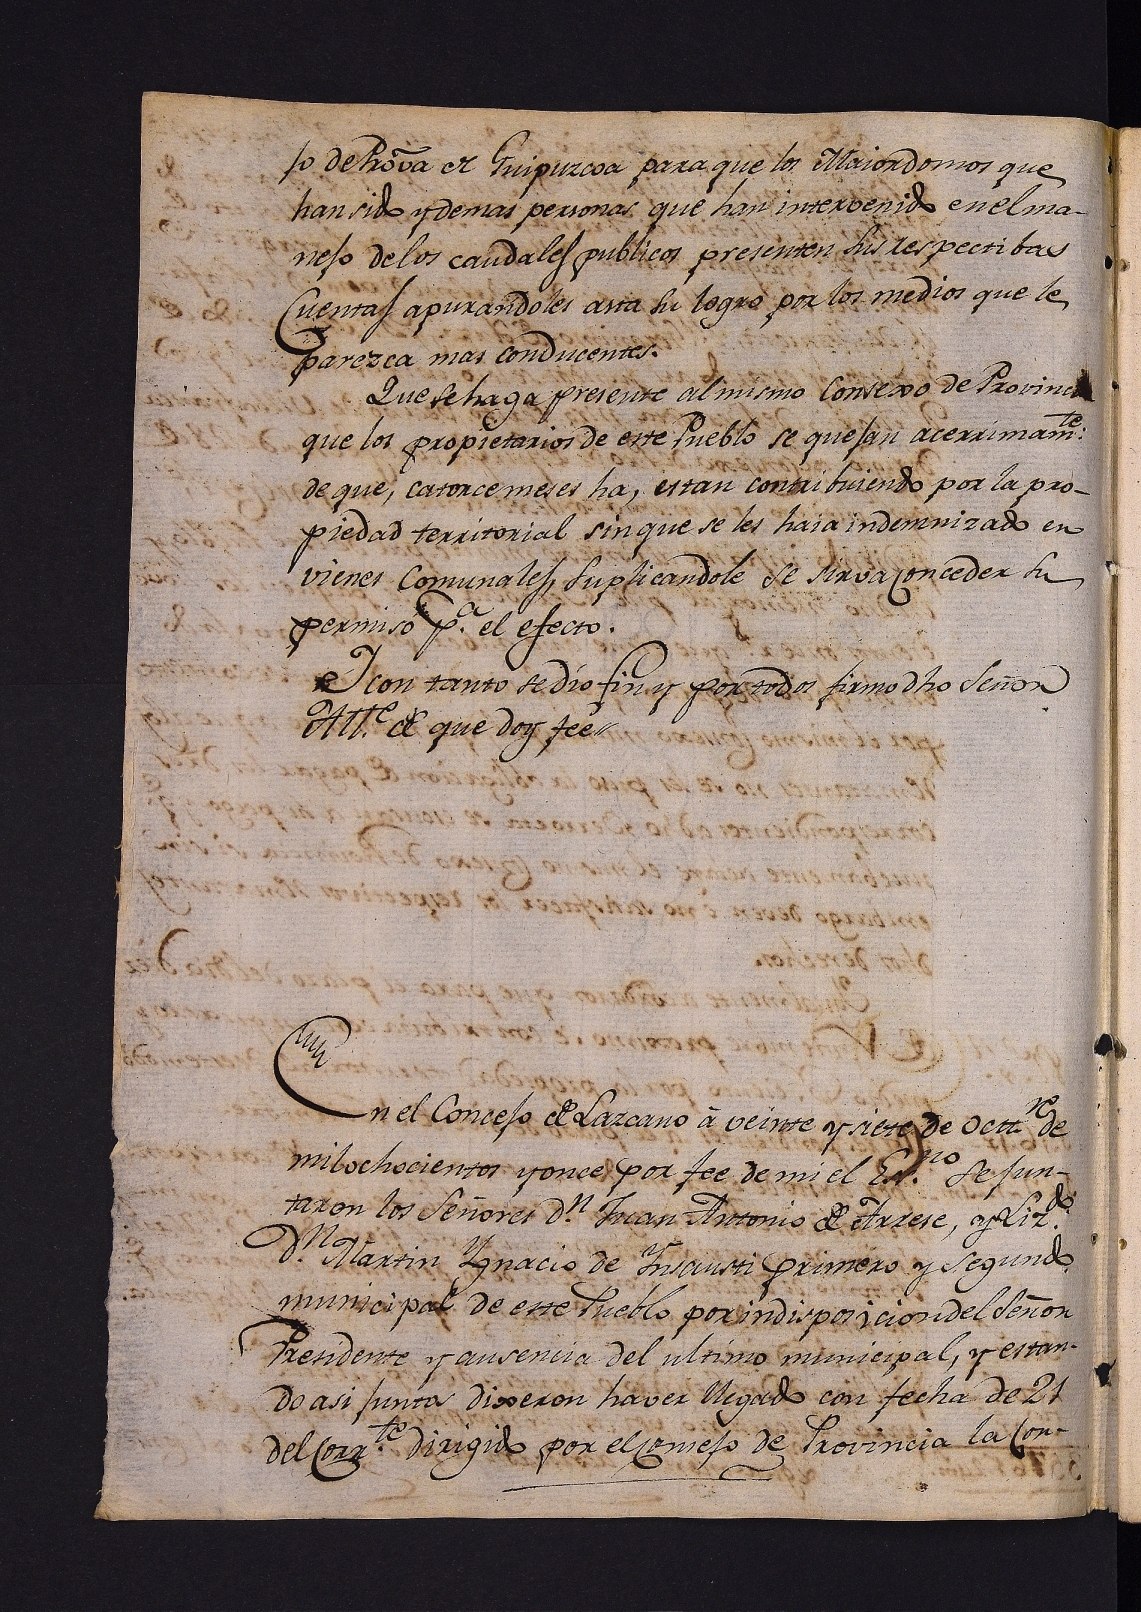 jo de Prova de Guipuzcoa para que los Maiordomos que
han sido y demas personas que han intervenido en el ma-
nejo de los caudales publicos presenten sus respectibas
Cuentas apurandoles asta su logro por los medios que le
parezca mas conducentes.
Que se haga presente al mismo Consexo de Provincia
que los propietarios de este Pueblo se quejan acerrimamte.
de que, catorce meses ha, estan contribuiendo por la pro-
piedad territorial sin que se les haia indemnizado en
vienes Comunales, suplicandole se sirva conceder su
permiso pa. el efecto.
I con tanto se dio fin y por todos firmo dho Señor
Alle. de que doy feé
En el Concejo de Lazcano á veinte y siete de Octre. de
mil ochocientos y once por fee de mi el Esno. se jun-
taron los Señores Dn. Juan Antonio de Arrese, y Lizdo.
Dn. Martin Ygnacio de Ynsausti primero y segundo
municipal de este Pueblo por indisposicion del Señor
Presidente y ausencia del ultimo municipal, y estan-
do asi juntos dixeron haver llegado con fecha de 21
del Corrte. dirigido por el Consejo de Provincia la Con-